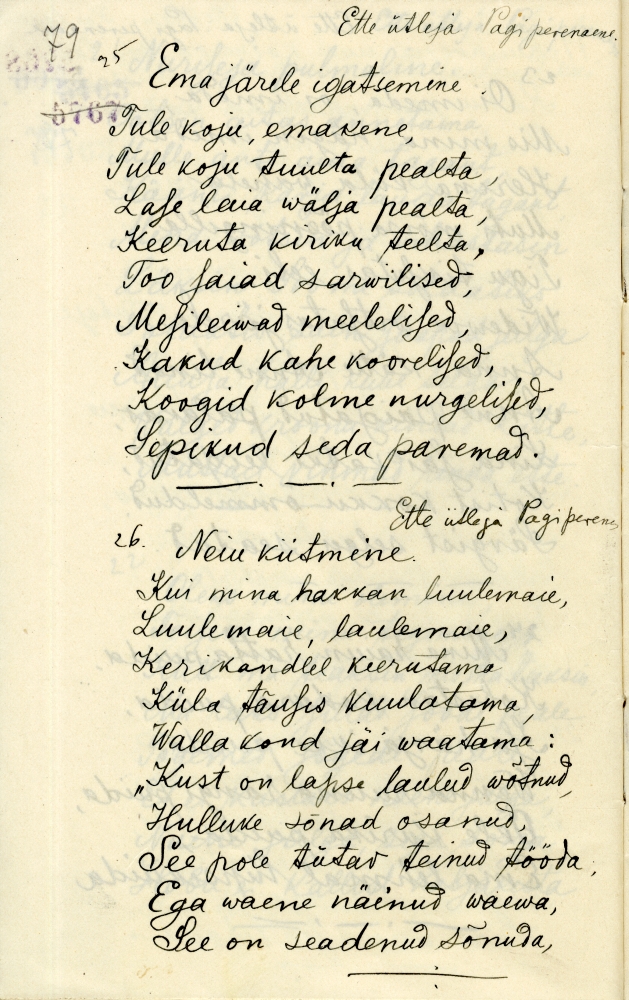 79
Ette ütleja Pagi perenaene.
25
Ema järele igatsemine.
Tule koju, emakene,
Tule koju tuulta pealta,
Lase laia wälja pealta,
Keeruta kiriku teelta,
Too saiad sarwilised,
Mesileiwad meelelised,
Kakud kahe koorelised,
Koogid kolme nurgelised,
Sepikud seda paremad.
Ette ütleja Pagi peren
26. Neiu kiitmine.
Kui mina hakkan luulemaie,
Luulemaie, laulemaie,
Kerikandlel keerutama
Küla täusis kuulatama,
Wallakond jäi waatama:
„Kust on lapse laulud wõtnud,
Hulluke sõnad osanud,
See pole tütar teinud tööda,
Ega waene näinud waewa,
See on seadenud sõnuda,